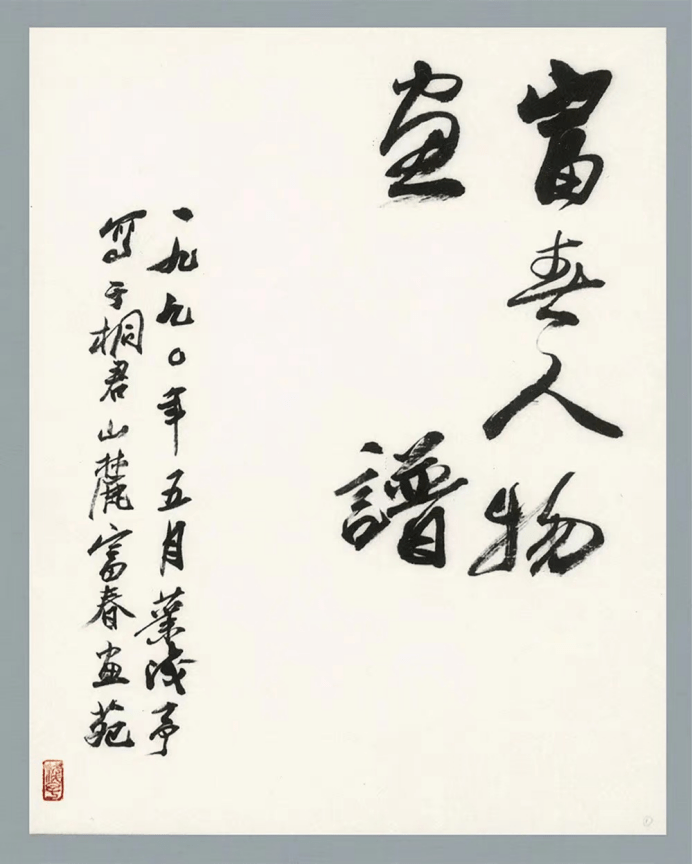 富春人物
画譜
一九九〇年五月葉浅予
寫于桐君山麓富春画苑